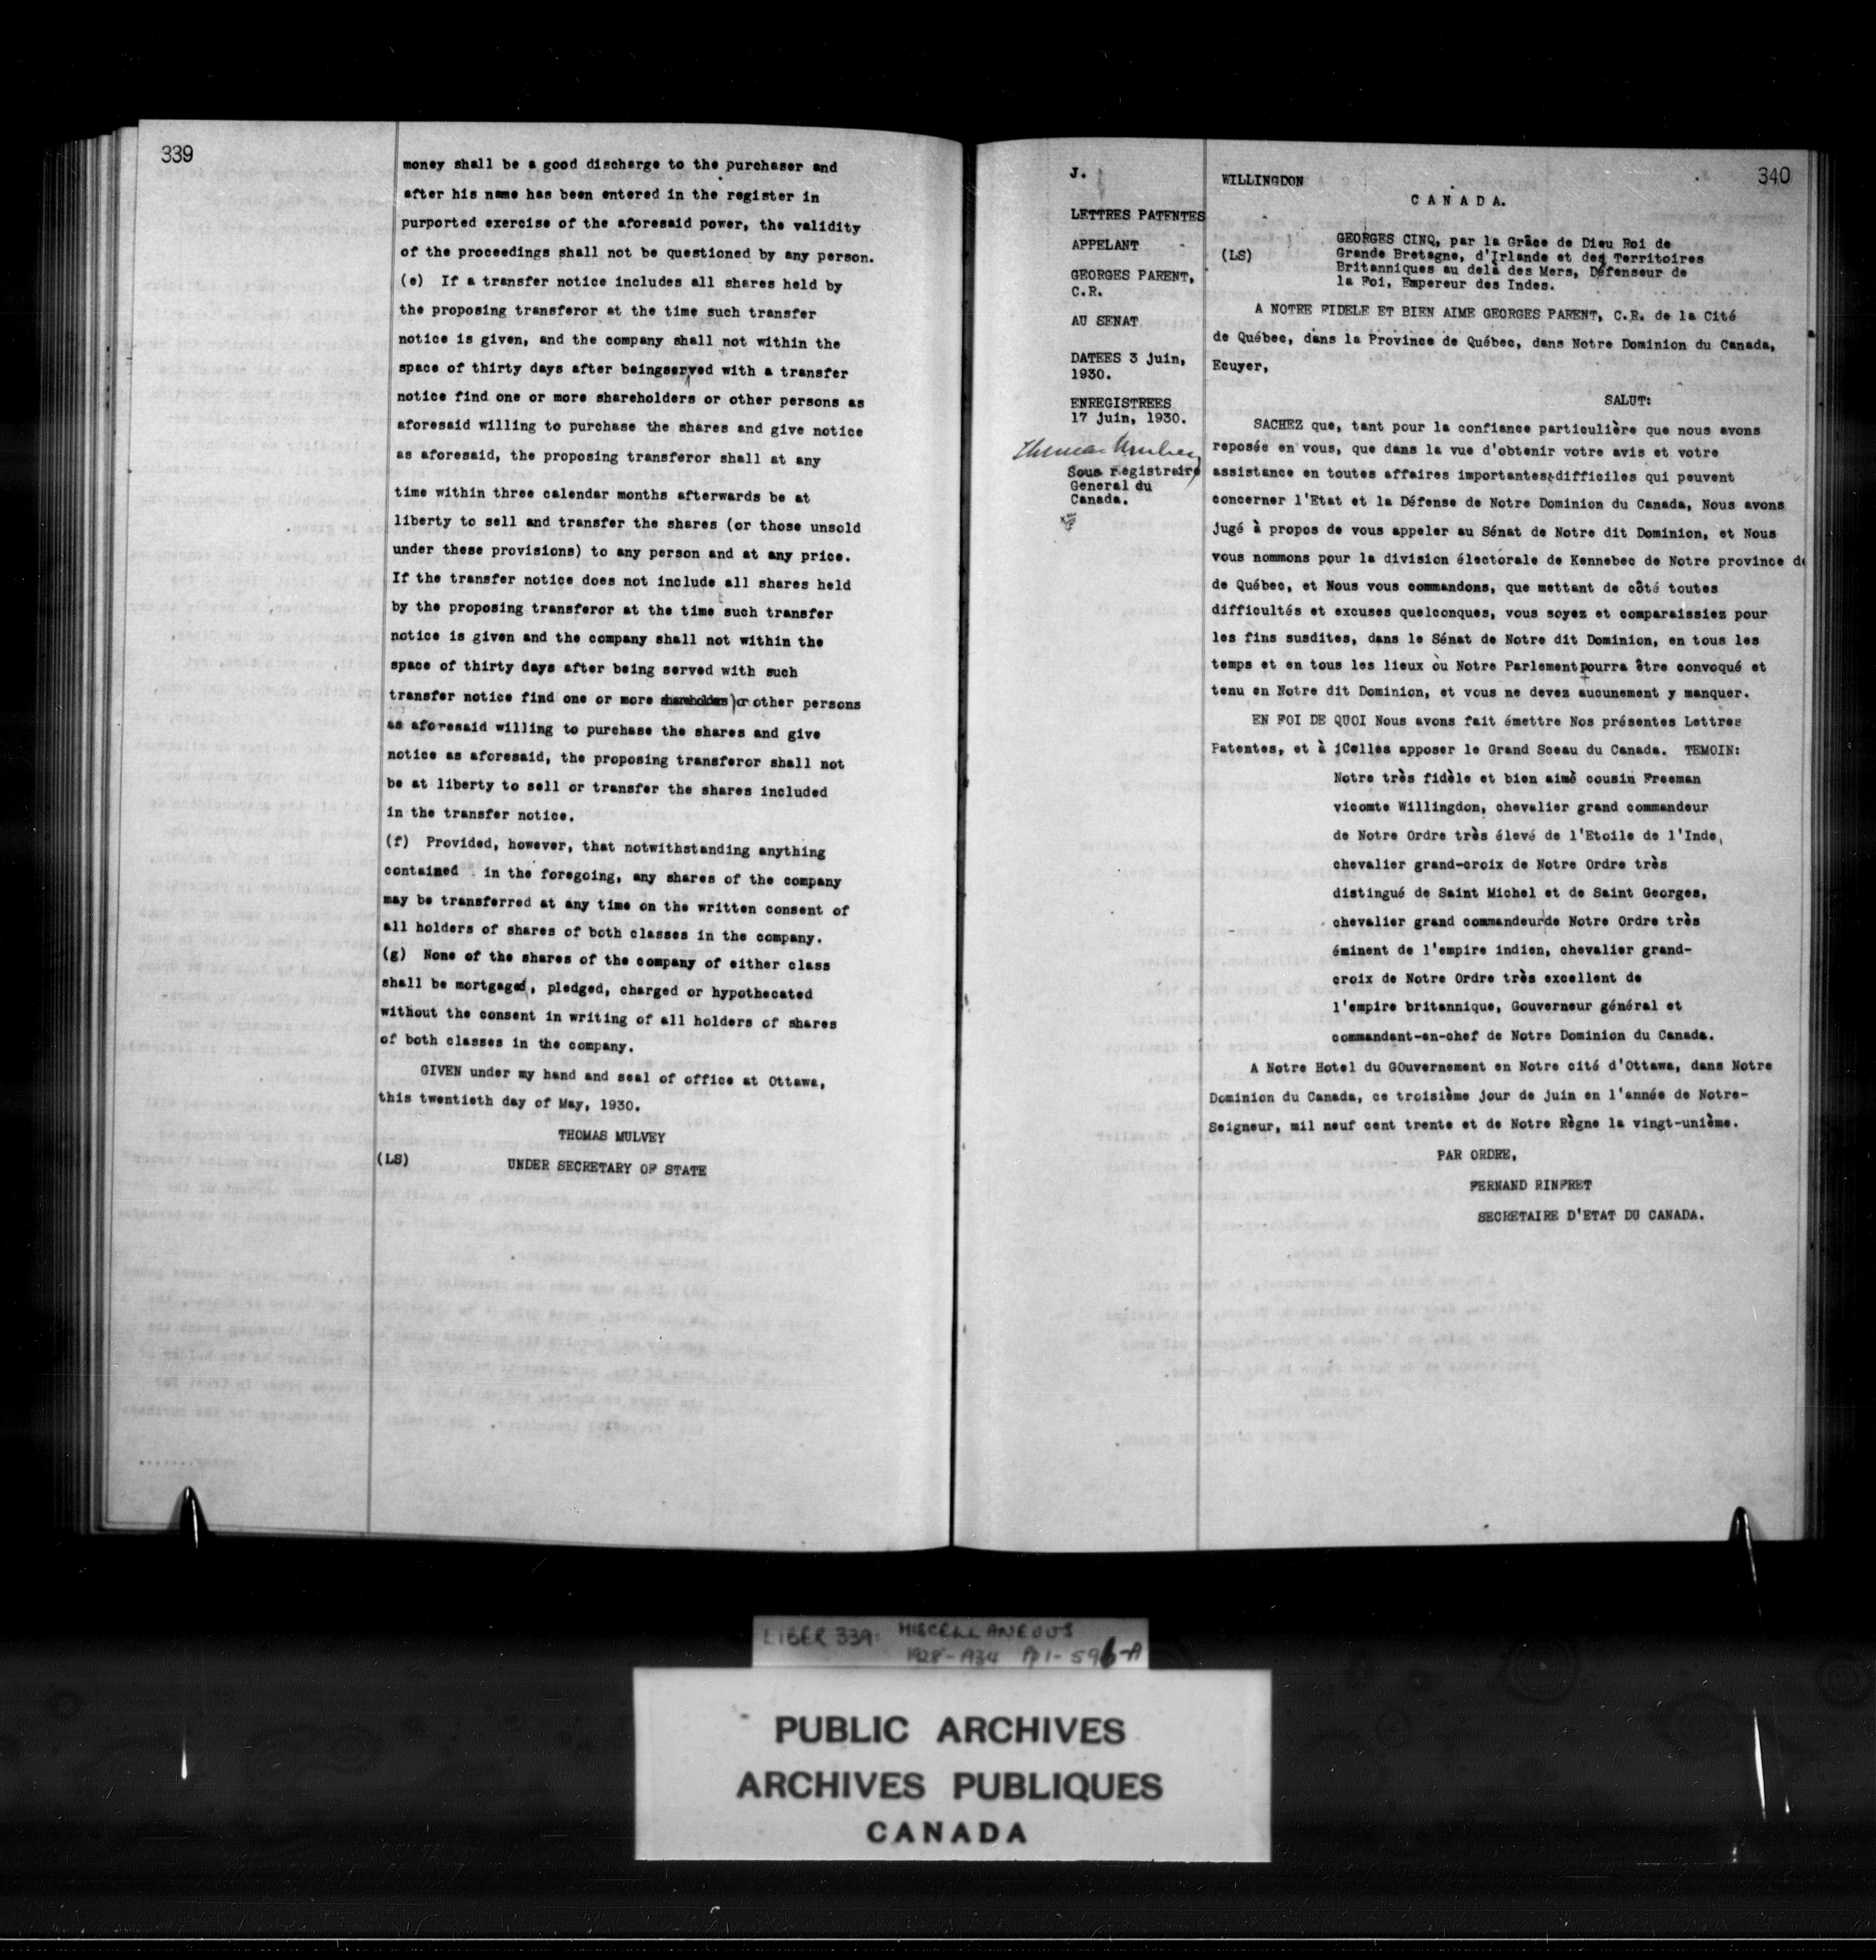 339
money shall be a good discharge to the purchaser and
after his name has been entered in the register in
purported exercise of the aforesaid power, the validity
of the proceedings shall not be questioned by any person.
(e) If a transfer notice includes all shares held by
the proposing transferor at the time such transfer
notice is given, and the company shall not within the
space of thirty days after beingserved with a transfer
notice find one or more shareholders or other persons as
aforesaid willing to purchase the shares and give notice
as aforesaid, the proposing transferor shall at any
time within three calendar months afterwards be at
liberty to sell and transfer the shares (or those unsold
under these provisions) to any person and at any price.
If the transfer notice does not include all shares held
by the proposing transferor at the time such transfer
notice is given and the company shall not within the
space of thirty days after being served with such
transfer notice find one or more shareholders or other persons
as aforesaid willing to purchase the shares and give
notice as aforesaid, the proposing transferor shall not
be at liberty to sell or transfer the shares included
in the transfer notice.
(f) Provided, however, that notwithstanding anything
contained in the foregoing, any shares of the company
may be transferred at any time on the written consent of
all holders of shares of both classes in the company.
(g) None of the shares of the company of either class
shall be mortgaged, pledged, charged or hypothecated
without the consent in writing of all holders of shares
of both classes in the company.
GIVEN under my hand and seal of office at Ottawa,
this twentieth day of May, 1930.
THOMAS MULVEY
(LS) UNDER SECRETARY OF STATE
340
J.
LETTRES PATENTES
APPELANT
GEORGES PARENT,
C.R.
AU SENAT
DATEES 3 juin,
1930.
ENREGISTREES
17 juin, 1930.
Thomas Mulvey
Sous registraire
General du
Canada.
WILLINGDON
CANADA.
(LS)
GEORGES CINQ, par la Grâce de Dieu Roi de
Grande Bretagne, d'Irlande et des Territoires
Britanniques au delà des Mers, Défenseur de
la Foi, Empereur des Indes.
A NOTRE FIDELE ET BIEN AIME GEORGES PARENT, C.R. de la Cité
de Québec, dans la Province de Québec, dans Notre Dominion du Canada,
Ecuyer,
SALUT:
SACHEZ que, tant pour la confiance particulière que nous avons
reposée en vous, que dans la vue d'obtenir votre avis et votre
assistance en toutes affaires importantes&difficiles qui peuvent
concerner l'Etat et la Défense de Notre Dominion du Canada, Nous avons
jugé à propos de vous appeler au Sénat de Notre dit Dominion, et Nous
vous nommons pour la division électorale de Kennebec de Notre province de
de Québec, et Nous vous commandons, que mettant de côté toutes
difficultés et excuses quelconques, vous soyez et comparaissiez pour
les fins susdites, dans le Sénat de Notre dit Dominion, en tous les
temps et en tous les lieux où Notre Parlement pourra être convoqué et
tenu en Notre dit Dominion, et vous ne devez aucunement y manquer.
EN FOI DE QUOI Nous avons fait émettre Nos présentes Lettres
Patentes, et à iCelles apposer le Grand Sceau du Canada. TEMOIN:
Notre très fidèle et bien aimé cousin Freeman
vicomte Willingdon, chevalier grand commandeur
de Notre Ordre très élevé de l'Etoile de l'Inde,
chevalier grand-croix de Notre Ordre très
distingué de Saint Michel et de Saint Georges,
chevalier grand commandeur de Notre Ordre très
éminent de l'empire indien, chevalier grand-
croix de Notre Ordre très excellent de
l'empire britannique, Gouverneur général et
commandant-en-chef de Notre Dominion du Canada.
A Notre Hotel du GOuvernement en Notre cité d'Ottawa, dans Notre
Dominion du Canada, ce troisième jour de juin en l'année de Notre-
Seigneur, mil neuf cent trente et de Notre Règne la vingt-unième.
PAR ORDRE,
FERNAND RINFRET
SECRETAIRE D'ETAT DU CANADA.
LIBER 339: MISCELLANEOUS
1928-1934 Pp 1-596-A
PUBLIC ARCHIVES
ARCHIVES PUBLIQUES
CANADA